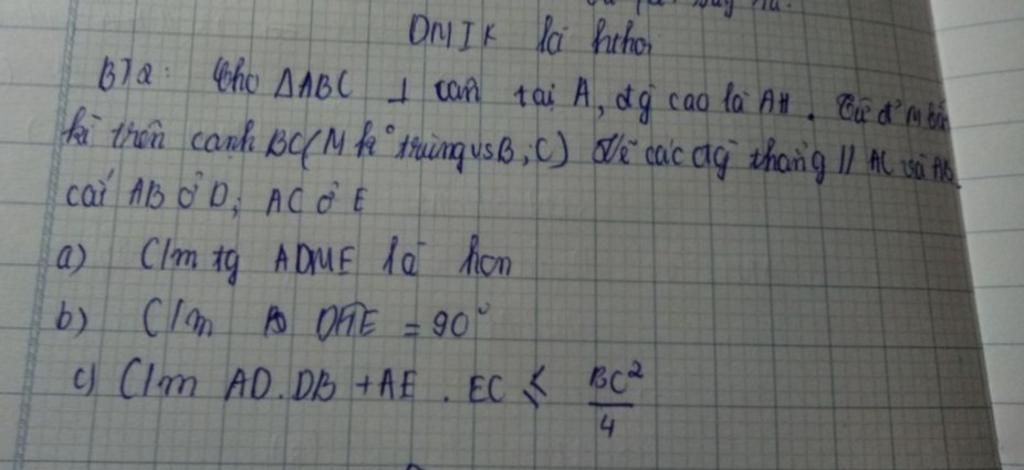 DMIK là hcho
BT2: Cho ΔABC ⊥ cân tại A, đg cao là AH. Từ đ' M bất
kì trên cạnh BC (M k° trùng vs B; C) Vẽ các đg thẳng // AC và AB
cắt AB ở D; AC ở E
a) C/m tg ADME là hcn
b) C/m DHE = 90°
c) C/m AD.DB + AE.EC ≤ BC²/4